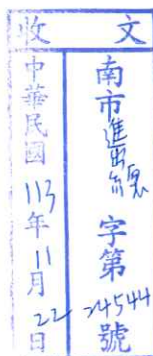 收文
南市進出字第24544號
中華民國113年11月22日